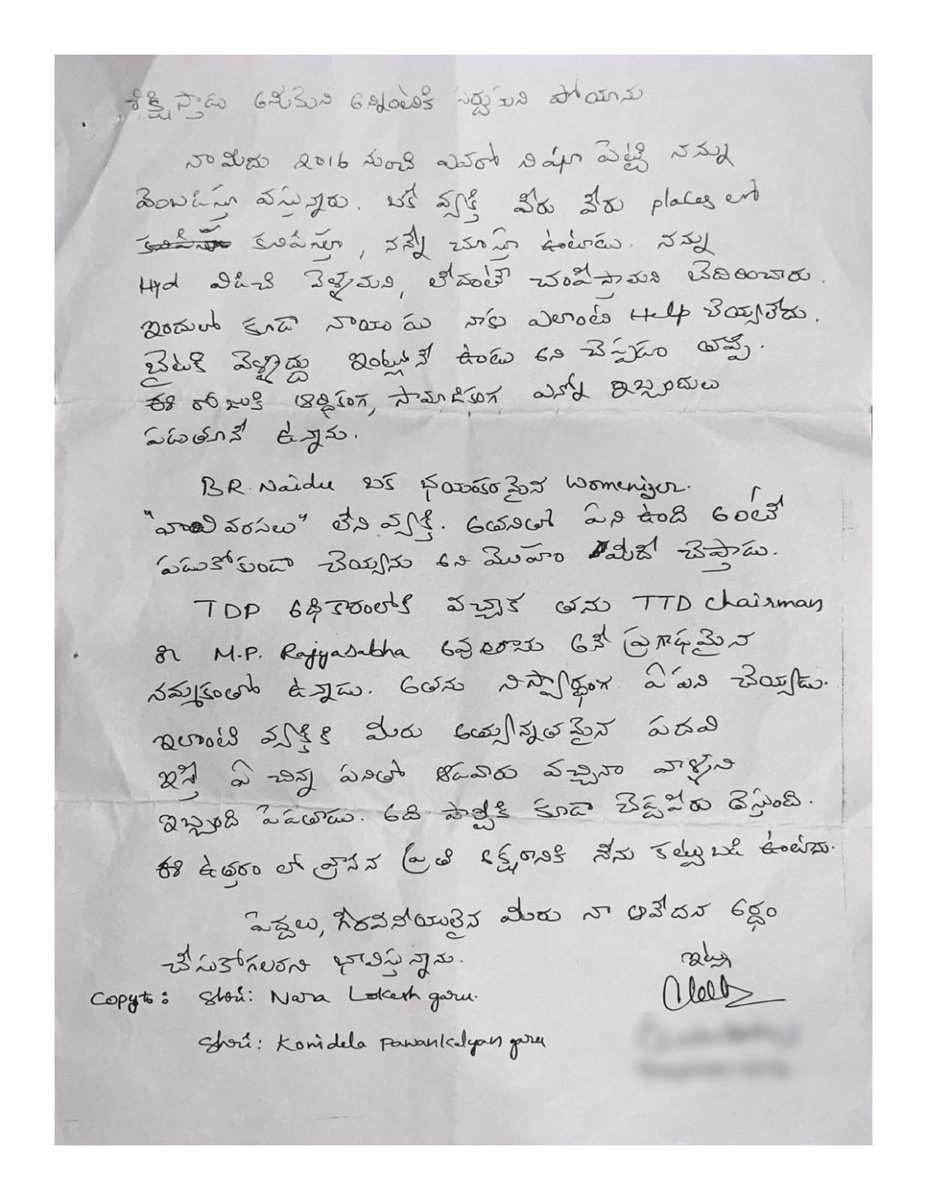 శిక్షిస్తాడు అనుకుని అన్నింటికి సర్దుకుని పోయాను
నా మీదు 2016 నుంచి ఎవరో నిఘా పెట్టి నన్ను
వెంబడిస్తూ వస్తున్నారు. ఒకే వ్యక్తి వేరు వేరు places లో
కనిపిస్తూ, నన్నే చూస్తా ఉంటాడు. నన్ను
Hyd విడిచి వెళ్ళమని, లేదంటే చంపేస్తామని బెదిరించారు.
ఇందులో కూడా నాయుడు నాకు ఎలాంటి Help చెయ్యలేదు.
బైటకి వెళ్ళొద్దు ఇంట్లోనే ఉండు అని చెప్పడం తప్పే.
ఈ రోజుకి ఆర్థికంగ, సామాజికంగ ఎన్నో ఇబ్బందులు
పడుతూనే ఉన్నాను.
BR. Naidu ఒక భయంకరమైన Womenizer.
"వావి వరసలు" లేని వ్యక్తి. అతనితో పని ఉంది అంటే
పడుకోకుండా చెయ్యను అని మొహం మీదే చెప్తాడు.
TDP అధికారంలోకి వచ్చాక తను TTD Chairman
or M.P. Rajyasabha అవుతాను అనే ప్రగాఢమైన
నమ్మకంతో ఉన్నాడు. అతను నిస్వార్థంగ ఏ పని చెయ్యడు.
ఇలాంటి వ్యక్తికి మీరు అత్యున్నతమైన పదవి
ఇస్తే ఏ చిన్న పనితో ఆడవారు వచ్చినా వాళ్ళని
ఇబ్బంది పెడతాడు. అది పార్టీకి కూడా చెడ్డపేరు తెస్తుంది.
ఈ ఉత్తరం లో వ్రాసిన ప్రతి అక్షరానికి నేను కట్టుబడి ఉంటాను.
పెద్దలు, గౌరవనీయులైన మీరు నా ఆవేదన అర్థం
చేసుకోగలరని భావిస్తున్నాను.
ఇట్లు
Copy to: Shri: Nara Lokesh garu.
Shri: Konidela Pawankalyan garu